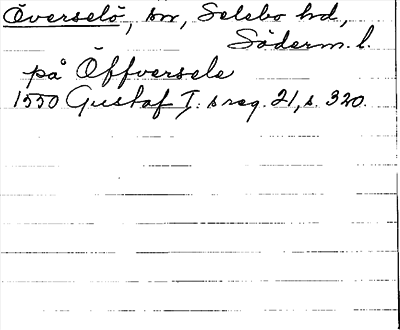 Överselö, sn, Selebo hd,
Söderm. l.
på Öffversele
1550 Gustaf I: s reg. 21, s. 320.